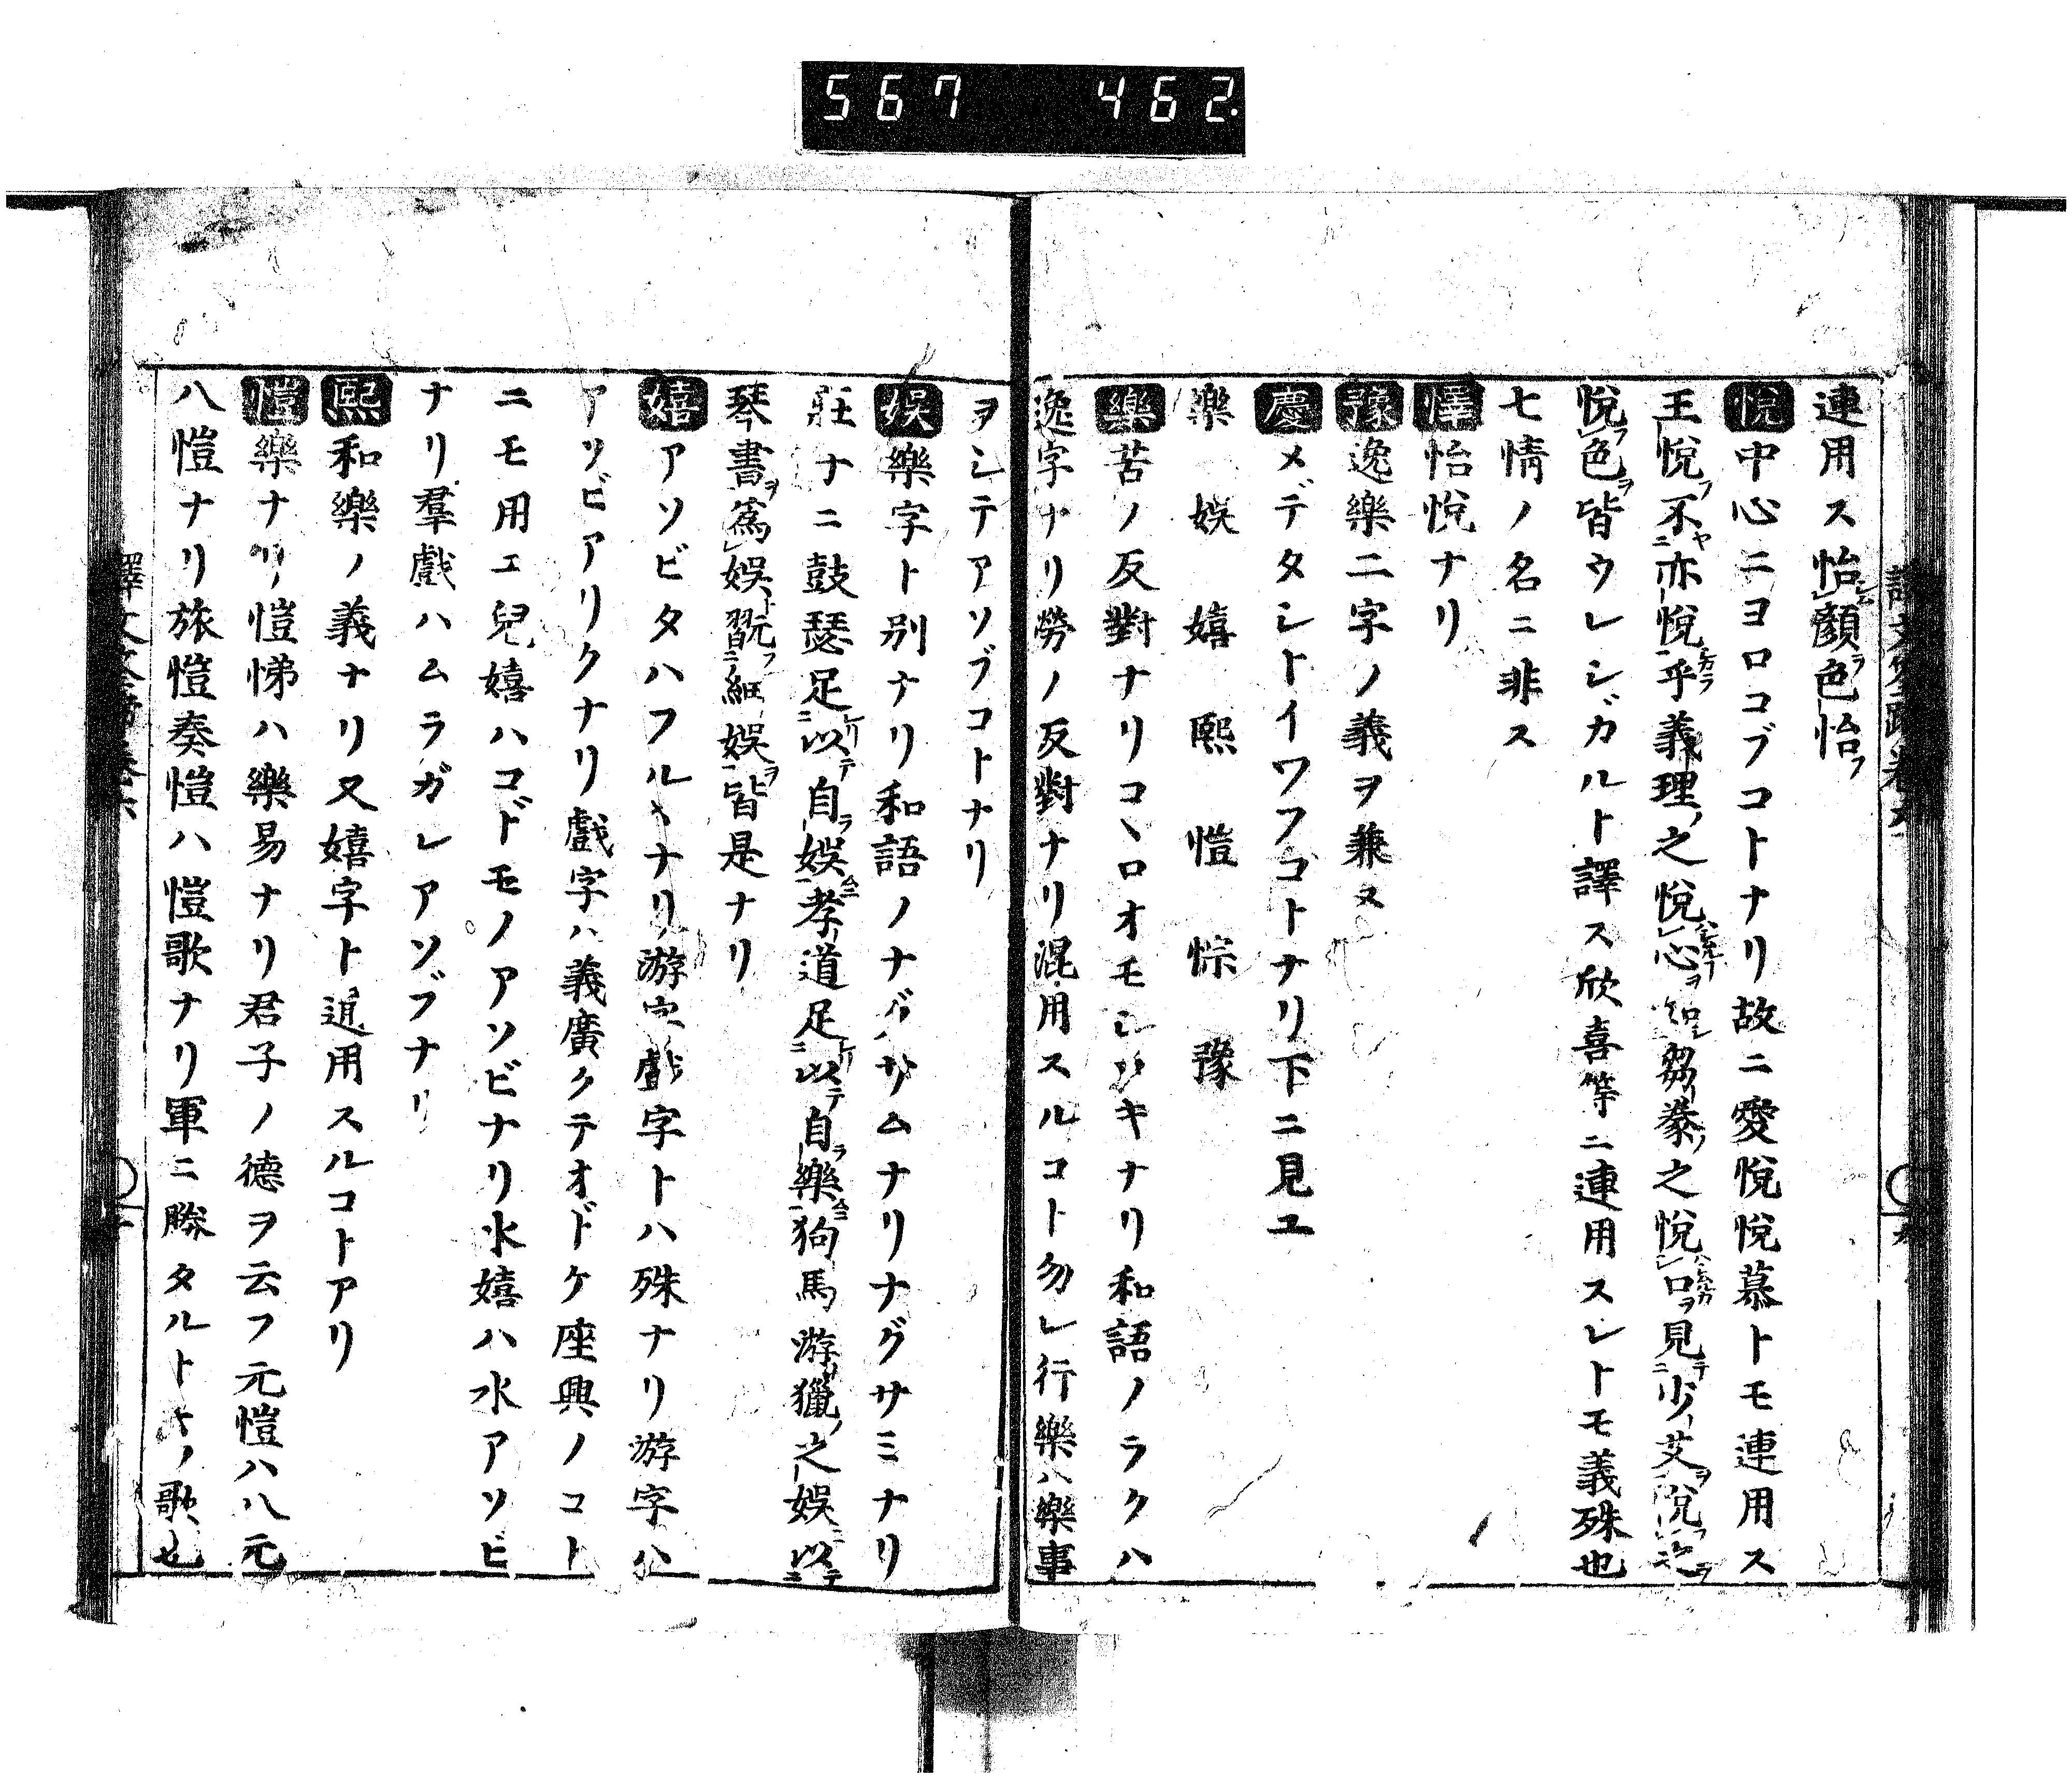 567 462.
連用ス怡顏色怡
悅中心ニヨロコブコトナリ故ニ愛悅悅慕トモ連用ス
王悅不亦悅乎義理之悅心芻豢之悅口見少艾悅之
悅色皆ウレシガルト譯ス欣喜等ニ連用スレトモ義殊也
七情ノ名ニ非ス
懌怡悅ナリ
豫逸樂二字ノ義ヲ兼ヌ
慶メデタシトイワフコトナリ下ニ見ユ
樂 娛 嬉 熙 愷 悰 豫
樂苦ノ反對ナリコヽロオモシロキナリ和語ノラクハ
逸字ナリ勞ノ反對ナリ混用スルコト勿レ行樂ハ樂事
ヲシテアソブコトナリ
娛樂字ト別ナリ和語ノナグサムナリナグサミナリ
莊ナニ鼓瑟足以自娛孝道足以自樂狗馬游獵之娛以
琴書爲娛翫細娛皆是ナリ
嬉アソビタハフルヽナリ游字戲字トハ殊ナリ游字ハ
アソビアリクナリ戲字ハ義廣クテオドケ座興ノコト
ニモ用エ兒嬉ハコドモノアソビナリ水嬉ハ水アソビ
ナリ羣戲ハムラガレアソブナリ
熙和樂ノ義ナリ又嬉字ト通用スルコトアリ
愷樂ナリ愷悌ハ樂易ナリ君子ノ德ヲ云フ元愷ハ八元
八愷ナリ旅愷奏愷ハ愷歌ナリ軍ニ勝タルトキノ歌也